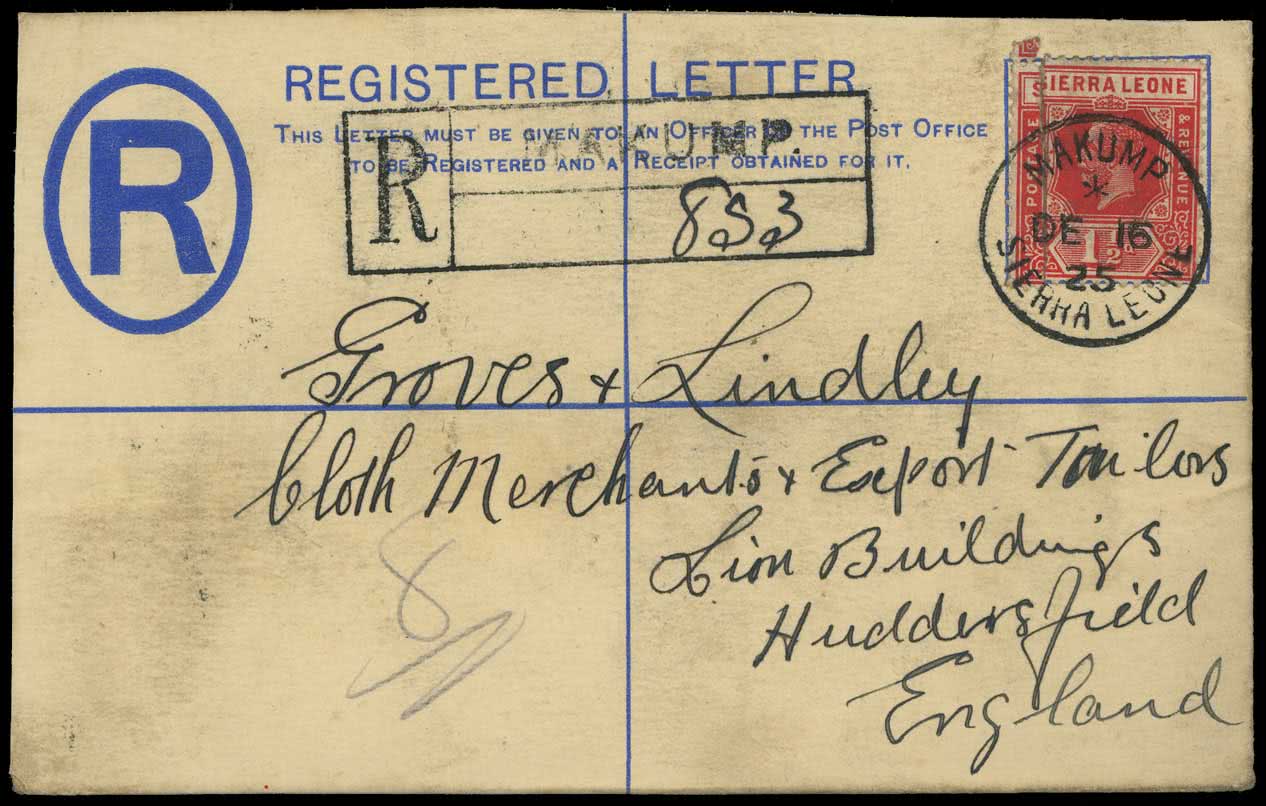 REGISTERED LETTER
THIS LETTER MUST BE GIVEN TO AN OFFICER THE POST OFFICE
TO BE REGISTERED AND A RECEIPT OBTAINED FOR IT.
R
R
MAKUMP.
853
SIERRA LEONE
POSTAGE
& REVENUE
1½
MAKUMP
DE 16
25
SIERRA LEONE
Groves & Lindley
Cloth Merchants & Export Tailors
Lion Buildings
Huddersfield
England